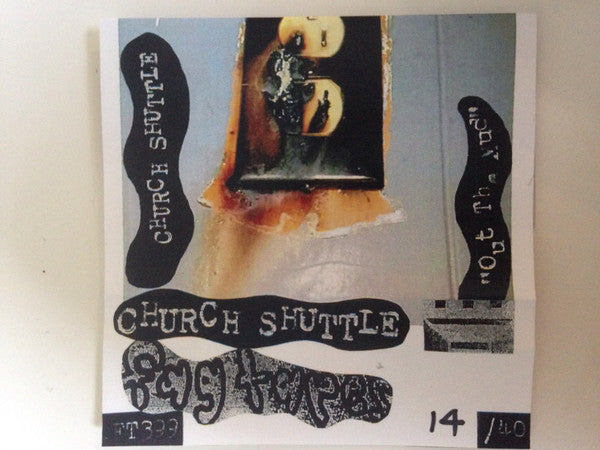 CHURCH SHUTTLE
"Out The Mud"
CHURCH SHUTTLE
FT399
14
/40